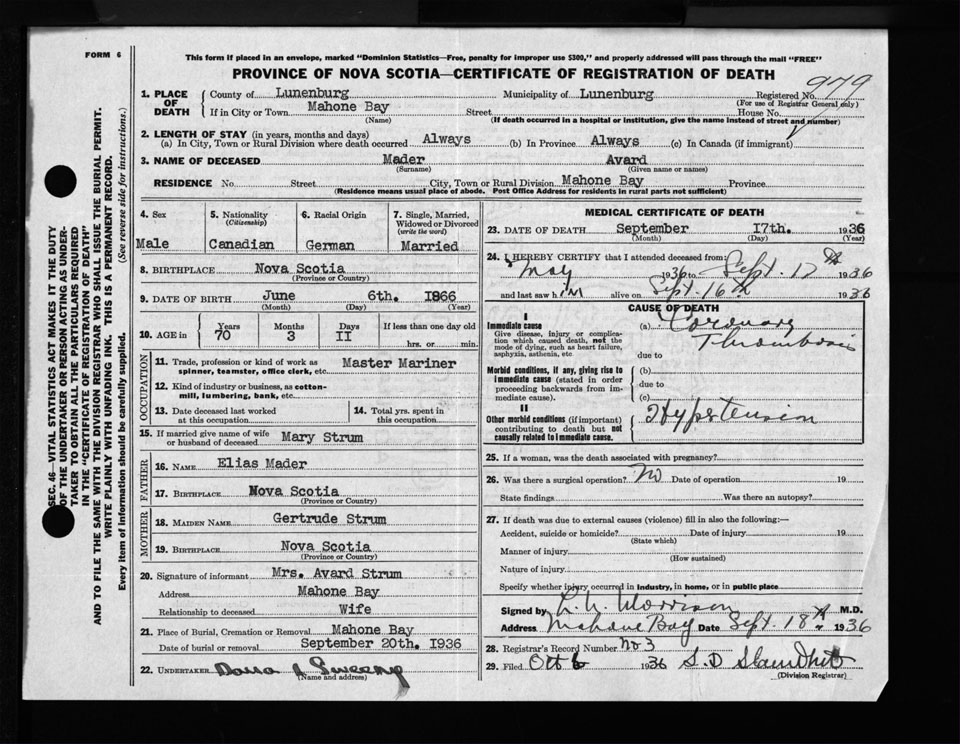 FORM 6
This form if placed in an envelope, marked "Dominion Statistics—Free, penalty for improper use $300," and properly addressed will pass through the mail "FREE"
PROVINCE OF NOVA SCOTIA—CERTIFICATE OF REGISTRATION OF DEATH
979
1. PLACE OF DEATH
County of Lunenburg Municipality of Lunenburg Registered No.
(For use of Registrar General only)
If in City or Town Mahone Bay Street House No.
(Name) (If death occurred in a hospital or institution, give the name instead of street and number)
2. LENGTH OF STAY (in years, months and days)
(a) In City, Town or Rural Division where death occurred Always (b) In Province Always (c) In Canada (if immigrant)
3. NAME OF DECEASED Mader Avard
(Surname) (Given name or names)
RESIDENCE No. Street City, Town or Rural Division Mahone Bay Province
(Residence means usual place of abode. Post Office Address for residents in rural parts not sufficient)
4. Sex
Male
5. Nationality
(Citizenship)
Canadian
6. Racial Origin
German
7. Single, Married, Widowed or Divorced
(write the word)
Married
8. BIRTHPLACE Nova Scotia
(Province or Country)
9. DATE OF BIRTH June 6th. I866
(Month) (Day) (Year)
10. AGE in
Years Months Days If less than one day old
70 3 II hrs. or min.
OCCUPATION
11. Trade, profession or kind of work as spinner, teamster, office clerk, etc. Master Mariner
12. Kind of industry or business, as cotton-mill, lumbering, bank, etc.
13. Date deceased last worked at this occupation
14. Total yrs. spent in this occupation
15. If married give name of wife or husband of deceased Mary Strum
FATHER
16. NAME Elias Mader
17. BIRTHPLACE Nova Scotia
(Province or Country)
MOTHER
18. MAIDEN NAME Gertrude Strum
19. BIRTHPLACE Nova Scotia
(Province or Country)
20. Signature of informant Mrs. Avard Strum
Address Mahone Bay
Relationship to deceased Wife
21. Place of Burial, Cremation or Removal Mahone Bay
Date of burial or removal September 20th. I936
22. UNDERTAKER
(Name and address)
MEDICAL CERTIFICATE OF DEATH
23. DATE OF DEATH September I7th. 1936
(Month) (Day) (Year)
24. I HEREBY CERTIFY that I attended deceased from:
May 1936 to Sept. 17th 1936
and last saw him alive on Sept. 16th 1936
CAUSE OF DEATH
I
Immediate cause
Give disease, injury or complication which caused death, not the mode of dying, such as heart failure, asphyxia, asthenia, etc
(a) Coronary Thrombosis
due to
Morbid conditions, if any, giving rise to immediate cause (stated in order proceeding backwards from immediate cause).
(b)
due to
(c)
II
Other morbid conditions (if important) contributing to death but not causally related to immediate cause.
Hypertension
25. If a woman, was the death associated with pregnancy?
26. Was there a surgical operation? No Date of operation 19
State findings Was there an autopsy?
27. If death was due to external causes (violence) fill in also the following:—
Accident, suicide or homicide? Date of injury 19
(State which)
Manner of injury
(How sustained)
Nature of injury
Specify whether injury occurred in industry, in home, or in public place
Signed by Morrison M.D.
Address Mahone Bay Date Sept. 18th 1936
28. Registrar's Record Number No 3
29. Filed Oct 6 1936 S. D
(Division Registrar)
SEC. 46—VITAL STATISTICS ACT MAKES IT THE DUTY
OF THE UNDERTAKER OR PERSON ACTING AS UNDER-
TAKER TO OBTAIN ALL THE PARTICULARS REQUIRED
IN THE "CERTIFICATE OF REGISTRATION OF DEATH"
AND TO FILE THE SAME WITH THE DIVISION REGISTRAR WHO SHALL ISSUE THE BURIAL PERMIT.
WRITE PLAINLY WITH UNFADING INK. THIS IS A PERMANENT RECORD.
Every item of information should be carefully supplied. (See reverse side for instructions.)